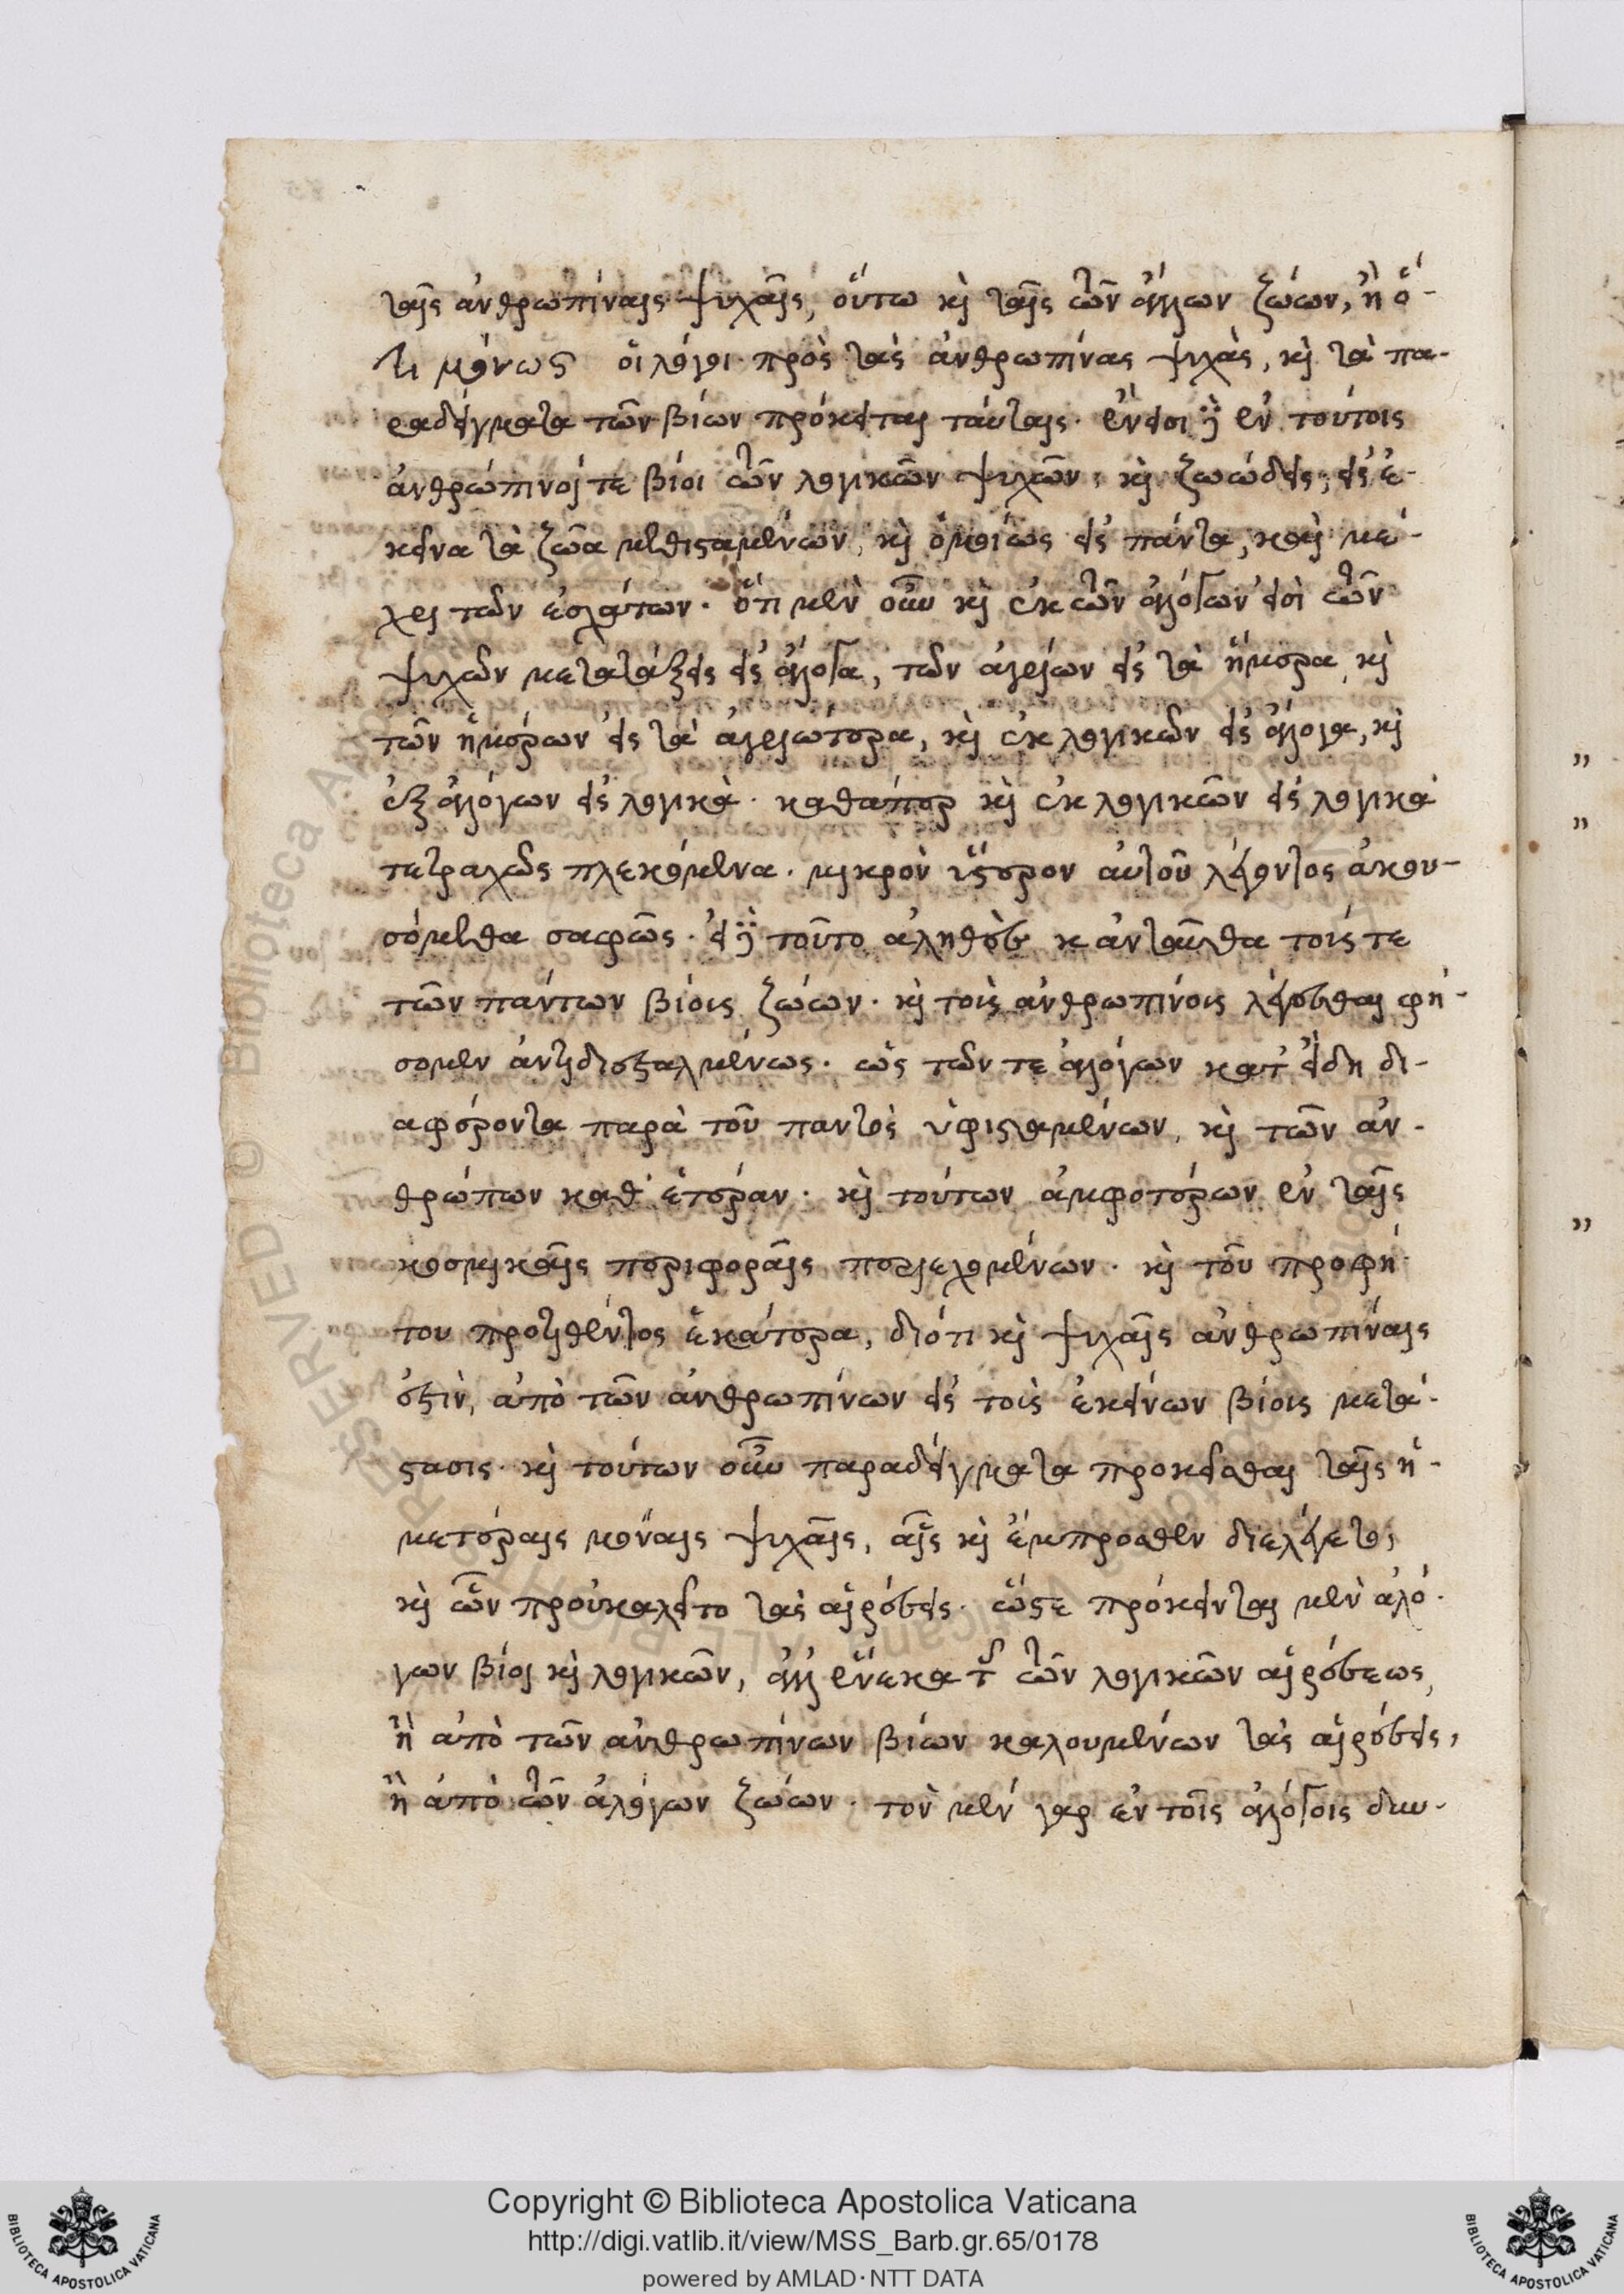 ταῖς ἀνθρωπίναις ψυχαῖς, οὕτω καὶ ταῖς τῶν ἄλλων ζώων, ἢ ὅ-
τι μόνως οἱ λόγοι πρὸς τὰς ἀνθρωπίνας ψυχὰς, καὶ τὰ πα-
ραδείγματα τῶν βίων πρόκειται ταύταις. ἔνεισι γὰρ ἐν τούτοις
ἀνθρώπινοί τε βίοι τῶν λογικῶν ψυχῶν, καὶ ζωώδεις, εἰς ἐ-
κεῖνα τὰ ζῶα μεθισταμένων, καὶ ὁμοίως εἰς πάντα, καὶ μέ-
χρι τῶν ἐσχάτων. ὅτι μὲν οὖν καὶ ἐκ τῶν ἀλόγων εἰσὶ τῶν
ψυχῶν μετατάξεις εἰς ἄλογα, τῶν ἀγρίων εἰς τὰ ἥμερα, καὶ
τῶν ἡμέρων εἰς τὰ ἀγριώτερα, καὶ ἐκ λογικῶν εἰς ἄλογα, καὶ
ἐξ ἀλόγων εἰς λογικά. καθάπερ καὶ ἐκ λογικῶν εἰς λογικὰ
τετραχῶς πλεκόμενα. μικρὸν ὕστερον αὐτοῦ λέγοντος ἀκου-
σόμεθα σαφῶς. εἰ γὰρ τοῦτο ἀληθὲς κἀνταῦθα τοῖς τε
τῶν πάντων βίοις ζώων. καὶ τοῖς ἀνθρωπίνοις λέγεσθαι φή-
σομεν ἀντιδιεσταλμένως. ὡς τῶν τε ἀλόγων κατ' εἴδη δι-
αφέροντα παρὰ τοῦ παντὸς ὑφισταμένων, καὶ τῶν ἀν-
θρώπων καθ' ἑτέραν. καὶ τούτων ἀμφοτέρων ἐν ταῖς
κοσμικαῖς περιφοραῖς περιεχομένων. καὶ τοῦ προφή-
του προτιθέντος ἑκάτερα, διότι καὶ ψυχαῖς ἀνθρωπίναις
ἐστὶν, ἀπὸ τῶν ἀνθρωπίνων εἰς τοῖς ἐκείνων βίοις μετά-
στασις. καὶ τούτων οὖν παραδείγματα προκεῖσθαι ταῖς ἡ-
μετέραις μόναις ψυχαῖς, αἷς καὶ ἔμπροσθεν διελέγετο,
καὶ ὧν προὐκαλεῖτο τὰς αἱρέσεις. ὥστε πρόκεινται μὲν ἀλό-
γων βίοι καὶ λογικῶν, ἀλλ' ἕνεκα τῆς τῶν λογικῶν αἱρέσεως,
ἢ ἀπὸ τῶν ἀνθρωπίνων βίων καλουμένων τὰς αἱρέσεις,
ἢ ἀπὸ τῶν ἀλόγων ζώων. τὸν μὲν γὰρ ἐν τοῖς ἀλόγοις
Copyright © Biblioteca Apostolica Vaticana
http://digi.vatlib.it/view/MSS_Barb.gr.65/0178
powered by AMLAD·NTT DATA